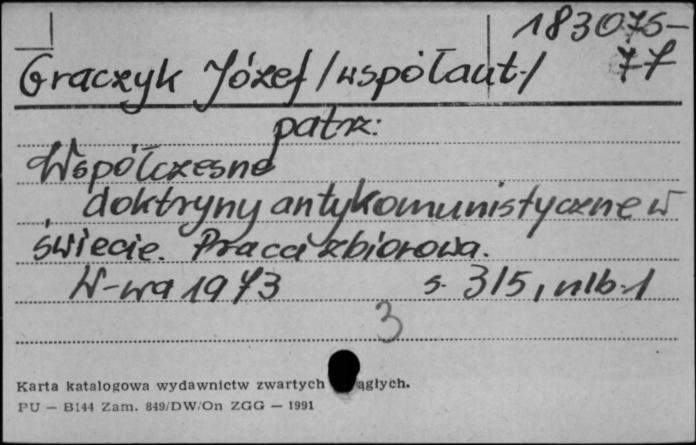 183075-
77
Graczyk Józef /współaut./
patrz:
Współczesne
doktryny antykomunistyczne w
świecie. Praca zbiorowa.
W-wa 1973 s. 315, nlb. 1
3
Karta katalogowa wydawnictw zwartych ągłych.
PU — B144 Zam. 849/DW/On ZGG — 1991